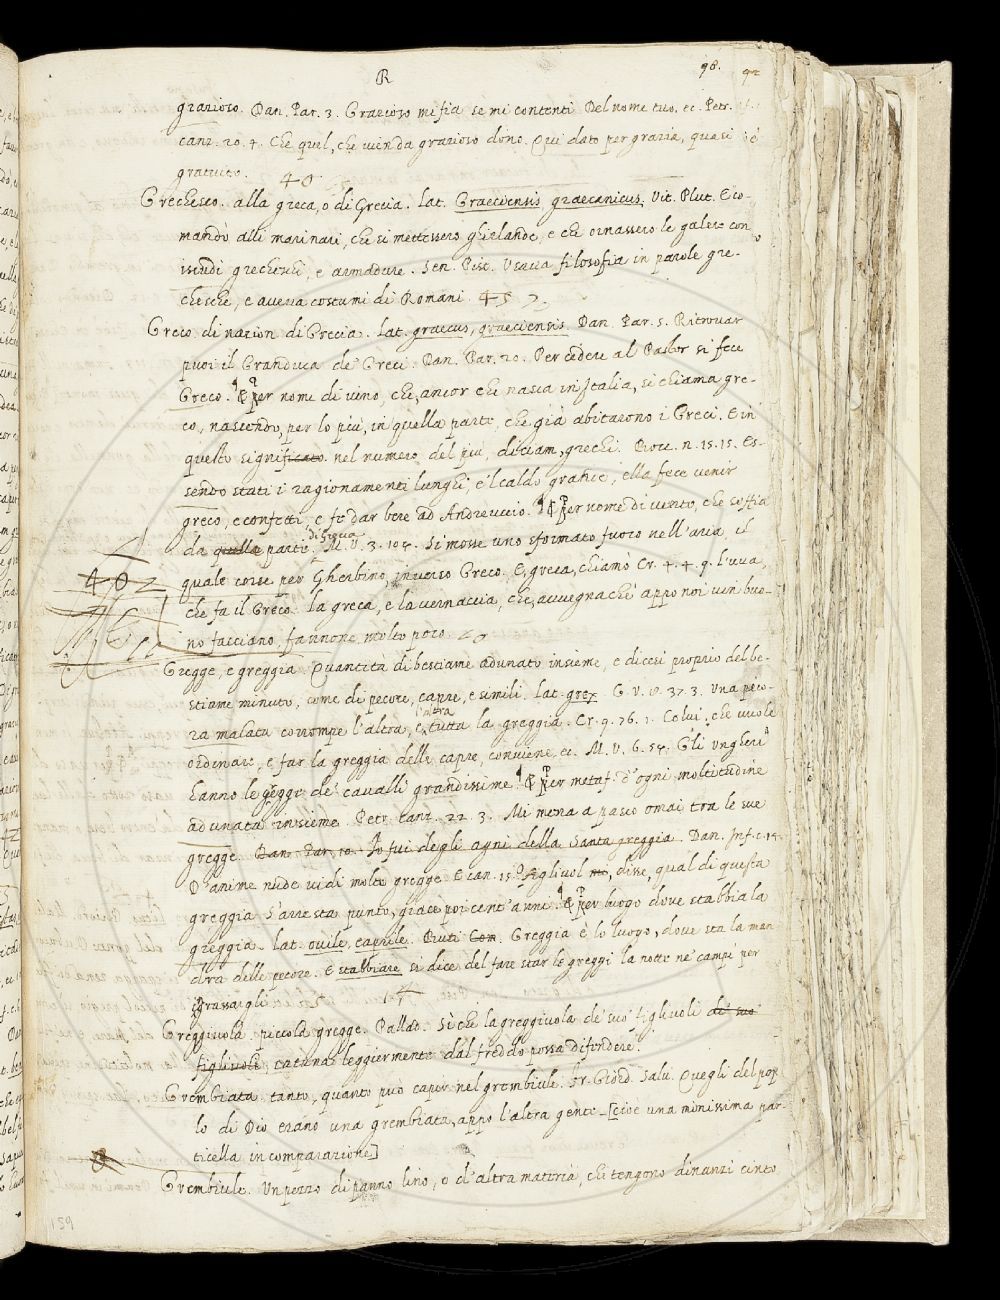 R
98. 92
grazioso. Dan. Par. 3. Grazioso mi fia se mi contenti Del nome tuo. ec. Petr.
canz. 20. 4. Che quel, che vien da grazioso dono. Qui dato per grazia, quasi
gratuito. 40
Grechesco. alla greca, o di Grecia. Lat. Graeciensis, graecanicus. Vit. Plut. E co-
mandò alli marinari, che si mettessero ghirlande, e che ornassero le galee con
iscudi grecheschi, e armadure. Sen. Pist. Usava filosofia in parole gre-
chesche, e aveva costumi di Romani. 45
Greco. di nazion di Grecia. Lat. graecus, graeciensis. Dan. Par. 5. Ritrovar
puoi il Granduca de' Greci. Dan. Par. 20. Per cedere al Pastor si fece
Greco. ¶ Per nome di vino, che, ancor che nasca in Italia, si chiama gre-
co, nascendo, per lo più, in quella parte, che già abitarono i Greci. E in
questo significato nel numero del più, diciam, grechi. Bocc. n. 15. 15. Es-
sendo stati i ragionamenti lunghi, e 'l caldo grande, ella fece venir
greco, e confetti, e fe dar bere ad Andreuccio. ¶ Per nome di vento, che soffia
di Grecia
da quella parte. M. V. 3. 104. Si mosse uno sformato fuoco nell'aria, il
402
quale corse per Gherbino, inverso Greco. E, greca, chiamò Cr. 4. 4. 9. l'uva,
che fa il Greco. La greca, e la vernaccia, che, avvegnachè appo noi vin buo-
no facciano, fannone molto poco. 20
Gregge, e greggia. Quantità di bestiame adunato insieme, e dicesi proprio del be-
stiame minuto, come di pecore, capre, e simili. Lat. grex. G. V. 8. 37. 3. Una peco-
l'altra
ra malata corrompe l'altra, e tutta la greggia. Cr. 9. 76. 1. Colui, che vuole
ordinare, e far la greggia delle capre, conviene, ec. M. V. 6. 54. Gli Ungheri
hanno le gregge de' cavalli grandissime. ¶ Per metaf. d'ogni moltitudine
adunata insieme. Petr. canz. 22. 3. Mi mena a pasco omai tra le sue
gregge. Dan. Par. 10. Io fui degli agni della santa greggia. Dan. Inf. c. 14.
D'anime nude vidi molte gregge. E can. 15. O figliuol mio, disse, qual di questa
greggia S'arresta punto, giace poi cent'anni. ¶ Per luogo dove stabbia la
greggia. Lat. ovile, caprile. Buti Com. Greggia è lo luogo, dove sta la man
dra delle pecore. E stabbiare si dice del fare star le greggi la notte ne' campi per
ingrassargli. 14
Greggiuola. piccola gregge. Pallad. Sì che la greggiuola de' suoi figliuoli de' suoi
figliuoli, catuna leggiermente dal freddo possa difendere.
Grembiata. tanto, quanto può caper nel grembiule. Fr. Giord. Salv. Quegli del pop
lo di Dio erano una grembiata, appo l'altra gente [cioè una minissima par-
ticella in comparazione]
Grembiule. Un pezzo di panno lino, o d'altra materia, che tengono dinanzi cinto
159